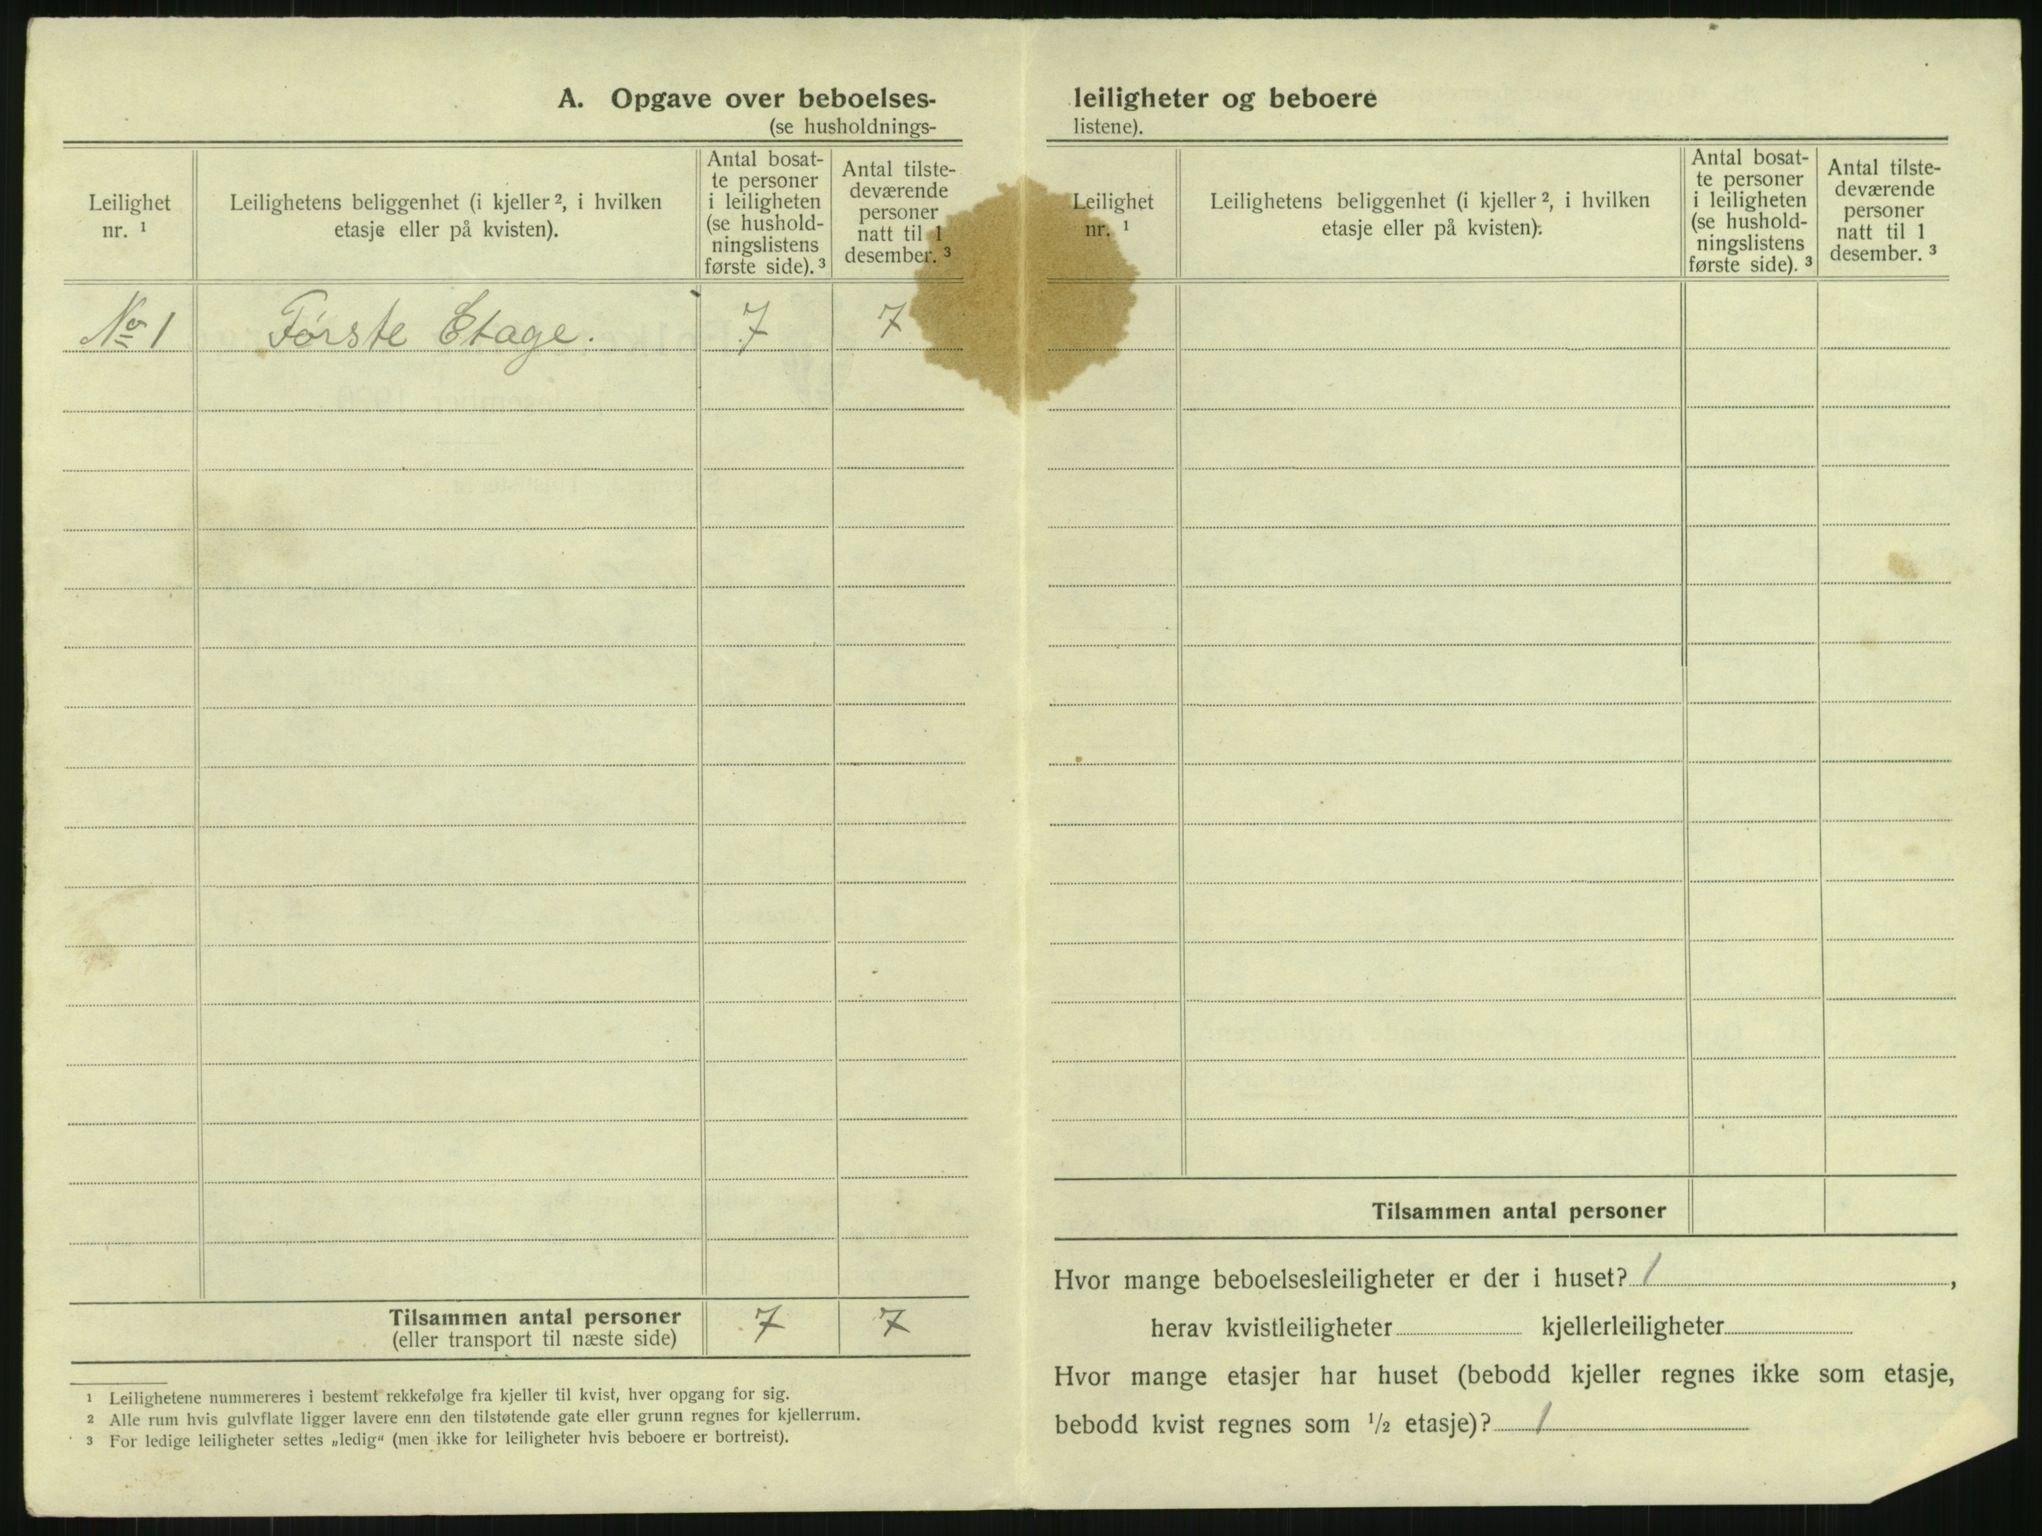 A. Opgave over beboelses-
(se husholdnings-
Leilighet
nr. ¹
Leilighetens beliggenhet (i kjeller ², i hvilken
etasje eller på kvisten).
Antal bosat-
te personer
i leiligheten
(se hushold-
ningslistens
første side). ³
Antal tilste-
deværende
personer
natt til 1
desember. ³
No 1 Første Etage. 7 7
Tilsammen antal personer
(eller transport til næste side)
7 7
¹ Leilighetene nummereres i bestemt rekkefølge fra kjeller til kvist, hver opgang for sig.
² Alle rum hvis gulvflate ligger lavere enn den tilstøtende gate eller grunn regnes for kjellerrum.
³ For ledige leiligheter settes „ledig“ (men ikke for leiligheter hvis beboere er bortreist).
leiligheter og beboere
listene).
Leilighet
nr. ¹
Leilighetens beliggenhet (i kjeller ², i hvilken
etasje eller på kvisten).
Antal bosat-
te personer
i leiligheten
(se hushold-
ningslistens
første side). ³
Antal tilste-
deværende
personer
natt til 1
desember. ³
Tilsammen antal personer
Hvor mange beboelsesleiligheter er der i huset? 1,
herav kvistleiligheter kjellerleiligheter
Hvor mange etasjer har huset (bebodd kjeller regnes ikke som etasje,
bebodd kvist regnes som ¹/₂ etasje)? 1